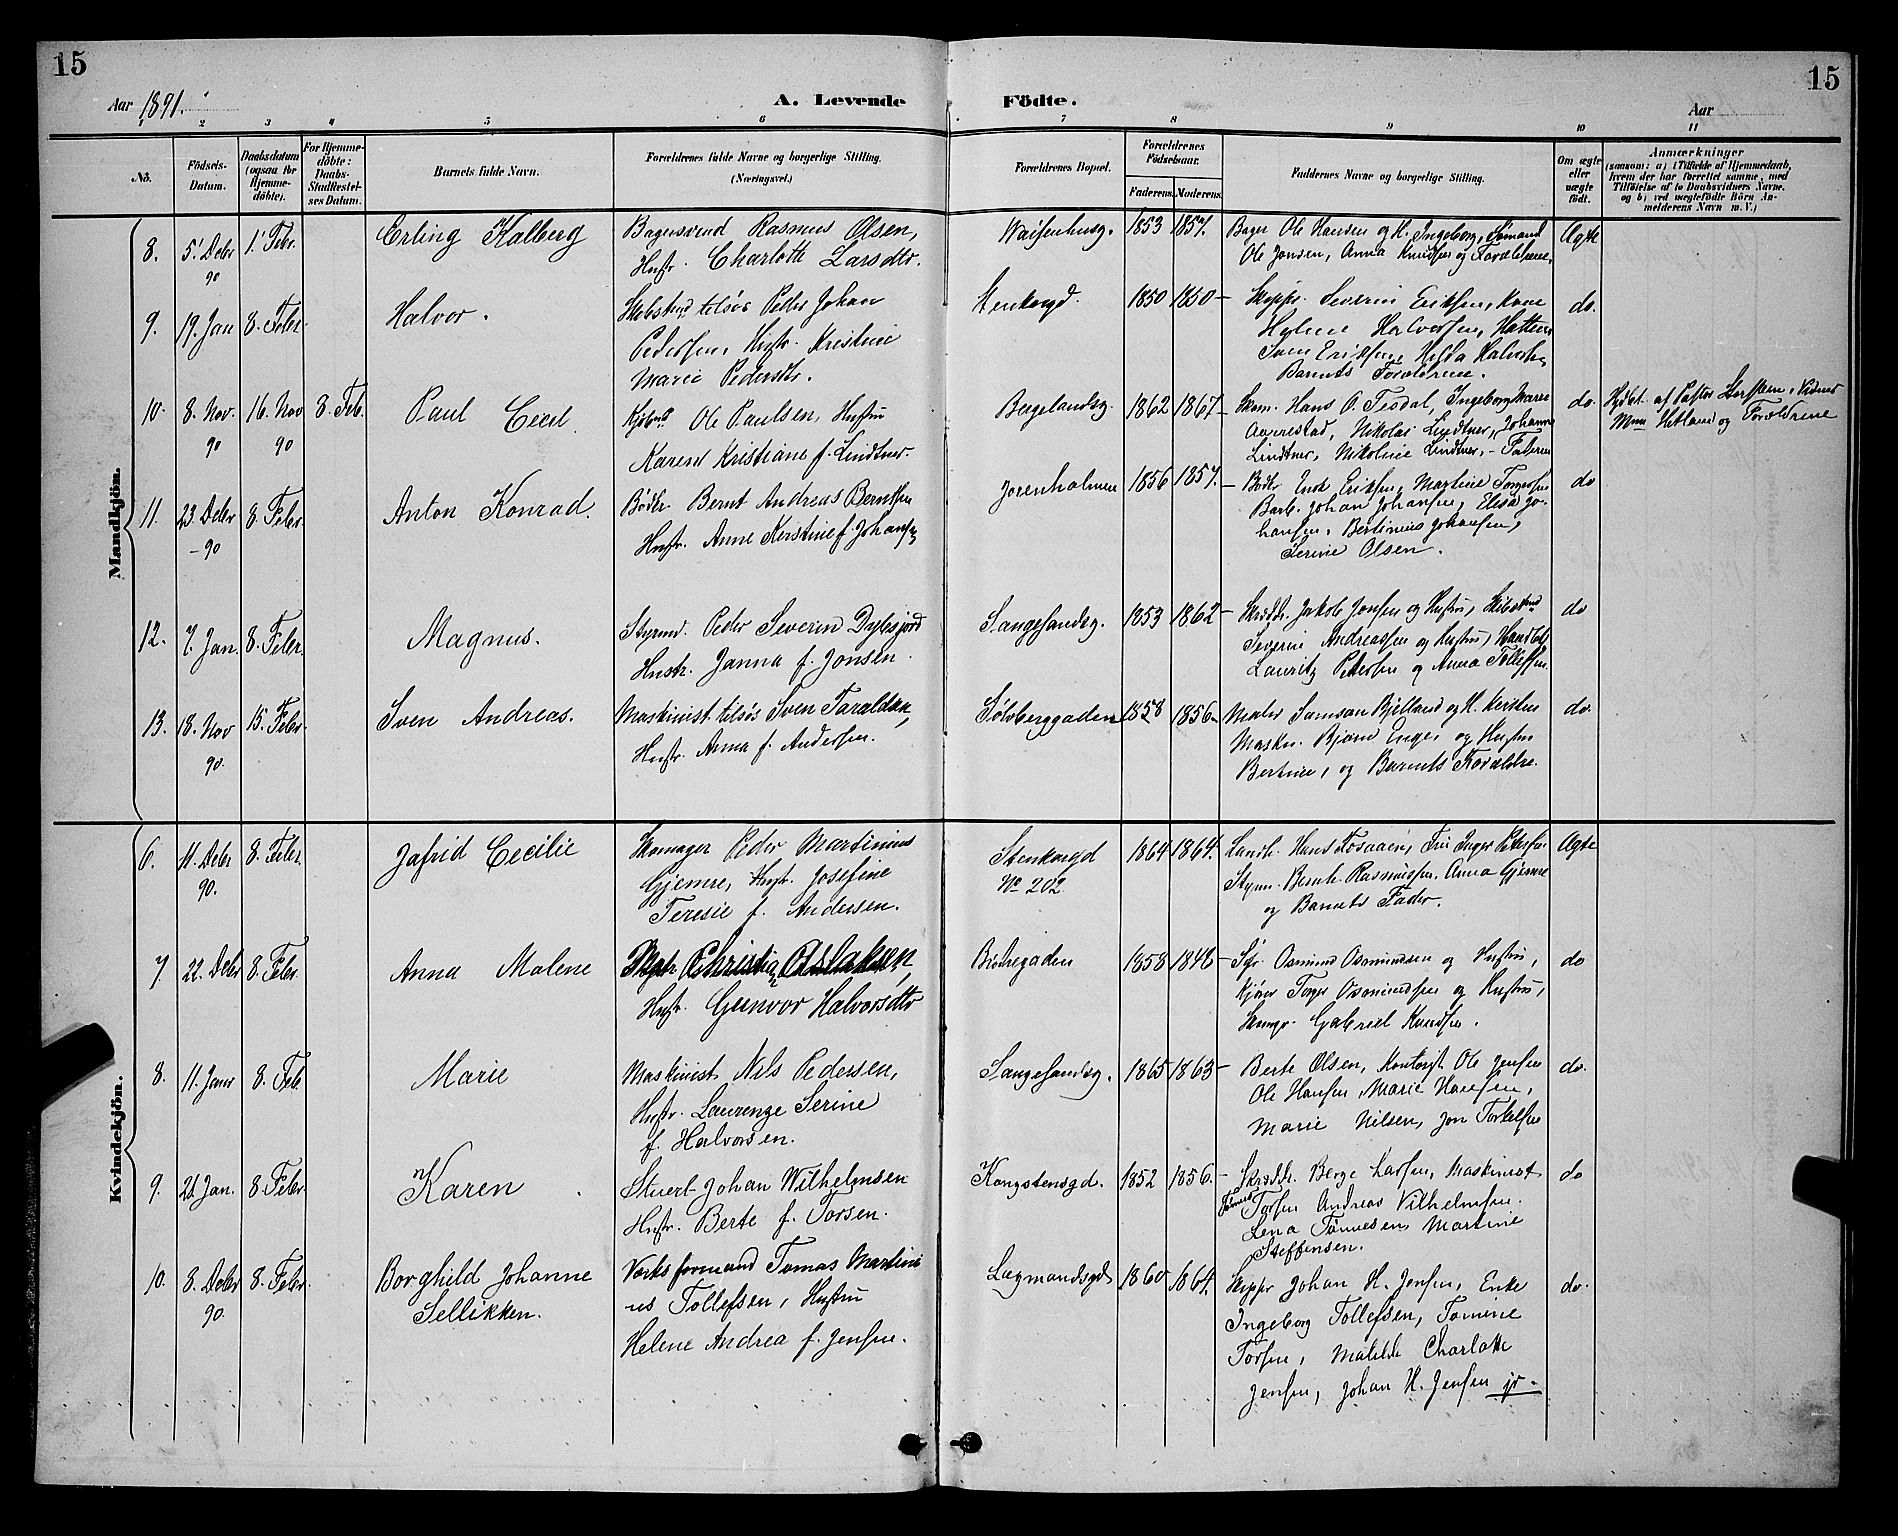 15
15
Aar 1891.
A. Levende Födte.
Aar
1 2 3 4 5 6 7 8 9 10 11
No.
Födsels-
Datum.
Daabsdatum
(ogsaa for
Hjemme-
döbte).
For Hjemme-
döbte:
Daabs-
Stadfæstel-
ses Datum.
Barnets fulde Navn.
Forældrenes fulde Navne og borgerlige Stilling.
(Næringsvei.)
Forældrenes Bopæl.
Forældrenes
Födselsaar.
Faderens. Moderens.
Faddernes Navne og borgerlige Stilling.
Om ægte
eller
uægte
födt.
Anmærkninger
(saasom: a) i Tilfælde af Hjemmedaab,
hvem der har forrettet samme, med
Tilföielse af to Daabsvidners Navne.
og b) ved uægtefödte Börn An-
melderens Navn m. V.)
Mandkjön.
8. 5' Debr 90 1' Febr. Erling Kalberg
Bagersvend Rasmus Olsen,
Hustr. Charlotte Larsdtr.
Waisenhusg. 1853 1857.
Bager Ole Hansen og H. Ingeborg, Sømand
Ole Jonsen, Anna Knudsen og Forældrene.
Ægte
9. 19. Jan 8. Febr. Halvor.
tilsøs Peder Johan
Pedersen, Hustr. Kristine
Marie Pedersdtr.
Stenkargd. 1850 1850
Skippr. Severin Eriksen, Kone
Halvorsen,
Sven Eriksen, Hilda Halvorsen
Barnets Forældrene.
do.
10. 8. Nov. 90 16. Nov 90 8 Feb. Paul Cecil
Kjøbm. Ole Paulsen, Hustru
Karen Kristiane f. Lindtner
Bergelandsg. 1862 1867
Skom. Hans O. Tesdal, Ingeborg Marie
Averestad, Nikolai Lindtner, Johanne
Lindtner, Nikoline Lindtner, - Faderen
do.
Hjdbt. af Pastor Vidner
Hetland og Forældrene
11. 23. Debr - 90 8. Febr. Anton Konrad.
Bødkr. Bernt Andreas Berntsen
Hustr. Anne Kerstine f. Johansen
Jorenholmen 1856 1857.
Bødkr Enok Eriksen, Martine Torgersen
Johan Johansen, Elisa Jo-
hansen, Bertinius Johansen,
Serine Olsen.
do
12. 7. Jan. 8. Febr. Magnus.
Styrmd. Peder Severin Dybesjord
Hustr. Janna f. Jonsen
Langesandsg. 1853 1862
Skrædd. Jakob Jonsen og Hustru,
Severin Andreassen og Hustru,
Lauritz Petersen og Anna Tollefsen
do
13. 18. Nov 90. 15. Febr. Sven Andreas.
Maskinist tilsøs Sven Taraldsen,
Hustr. Anna f. Andersen.
Sølvberggaden 1858 1856
Maler Samson Bjelland og H. Kersten
Maskn. Bjørn Enger og Hustru
Bertine, og Barnets Forældre.
do.
Kvindekjön.
6. 11. Debr 90. 8. Febr. Jafrid Cecilie
Skomager Peder Martinius
Gjemre, Hustr. Josefine
Teresie f. Andersen.
Stenkargd
No 202 1864 1864.
Hans Fosaaen, Inger Petersen
Styrm. Bernh. Rasmussen. Anna Gjemre
og Barnets Fader.
Ægte
7. 22. Debr 8. Febr. Anna Malene
Christian Aslaksen,
Hustr. Gunvor Halvorsdtr
Birkegaden 1858 1848
Osmund Osmundsen og Hustru,
Torger Osmundsen og Hustru,
Gabriel Knudsen.
do
8. 11. Janr 8. Febr Marie
Maskinist Nils Pedersen,
Hustr. Laurenze Serine
f. Halvorsen.
Langesandsg. 1865 1863
Berte Olsen, Kontorgt Ole Jensen
Ole Hansen, Marie Hansen,
Marie Nilsen, Jon Torkelsen
do.
9. 21. Jan. 8. Febr. Karen
Stuert Johan Wilhelmsen
Hustr. Berte f. Torsen.
Kongstensgd. 1852 1856.
Skrædd. Berge Larsen, Maskinist
Torsen Andreas Vilhelmsen.
Lena Tønnesen, Martine
Steffensen.
do
10. 8. Debr 90. 8. Febr. Borghild Johanne
Sellikken.
Værksformand Tomas Martini
us Tollefsen, Hustru
Helene Andrea f. Jensen.
Lagmandsgd 1860 1864.
Skippr Johan H. Jensen, Enke
Ingeborg Tollefsen, Tomine
Torsen, Matilde Charlotte
Jensen, Johan H. Jensen jr.
do.